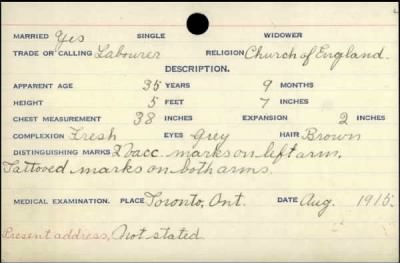 MARRIED Yes SINGLE WIDOWER
TRADE OR CALLING Labourer RELIGION Church of England.
DESCRIPTION.
APPARENT AGE 35 YEARS 9 MONTHS
HEIGHT 5 FEET 7 INCHES
CHEST MEASUREMENT 38 INCHES EXPANSION 2 INCHES
COMPLEXION Fresh EYES Grey HAIR Brown
DISTINGUISHING MARKS 2 vacc. marks on left arm,
Tattoved marks on both arms.
MEDICAL EXAMINATION. PLACE Toronto, Ont. DATE Aug. 1915.
Present address, Not stated